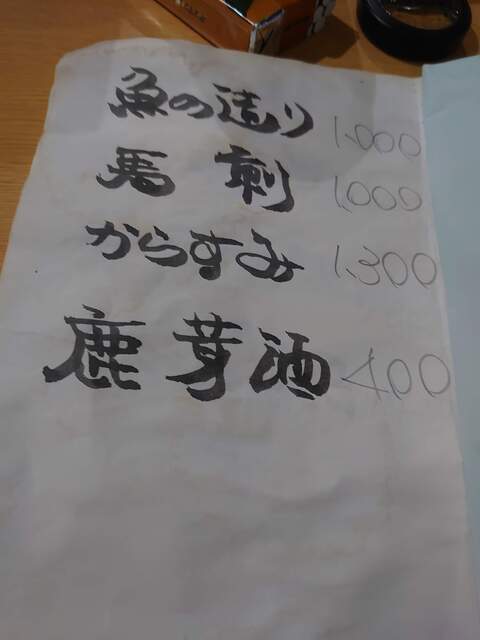 魚の造り 1,000
馬刺 1,000
からすみ 1,300
鹿茸酒 400